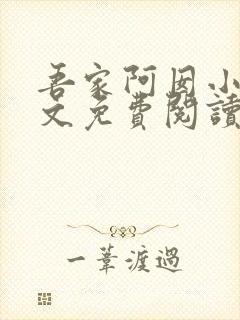 吾家阿囡小
文免費閱讀
一葦渡過